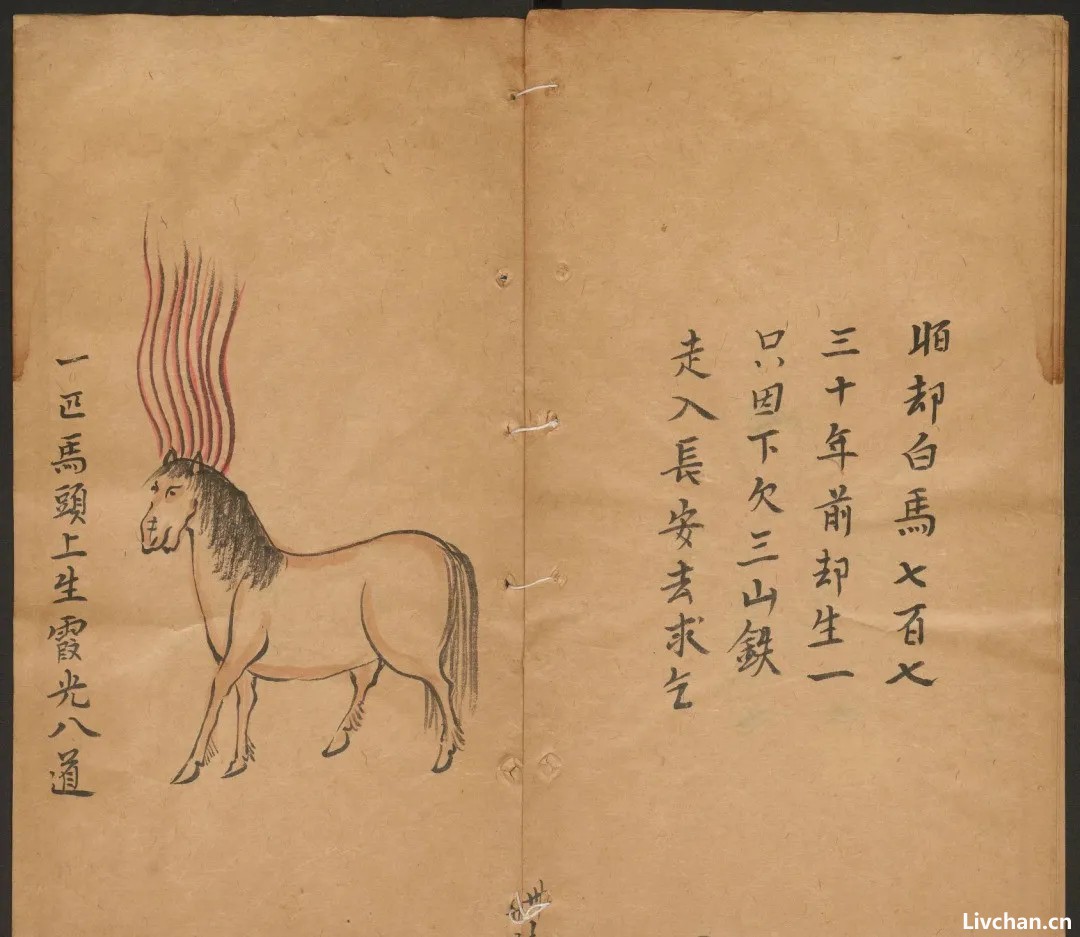 却白馬七百七
三十年前却生一
只因下欠三山鉄
走入長安去求乞
一匹馬頭上生霞光八道
Livchan.cn